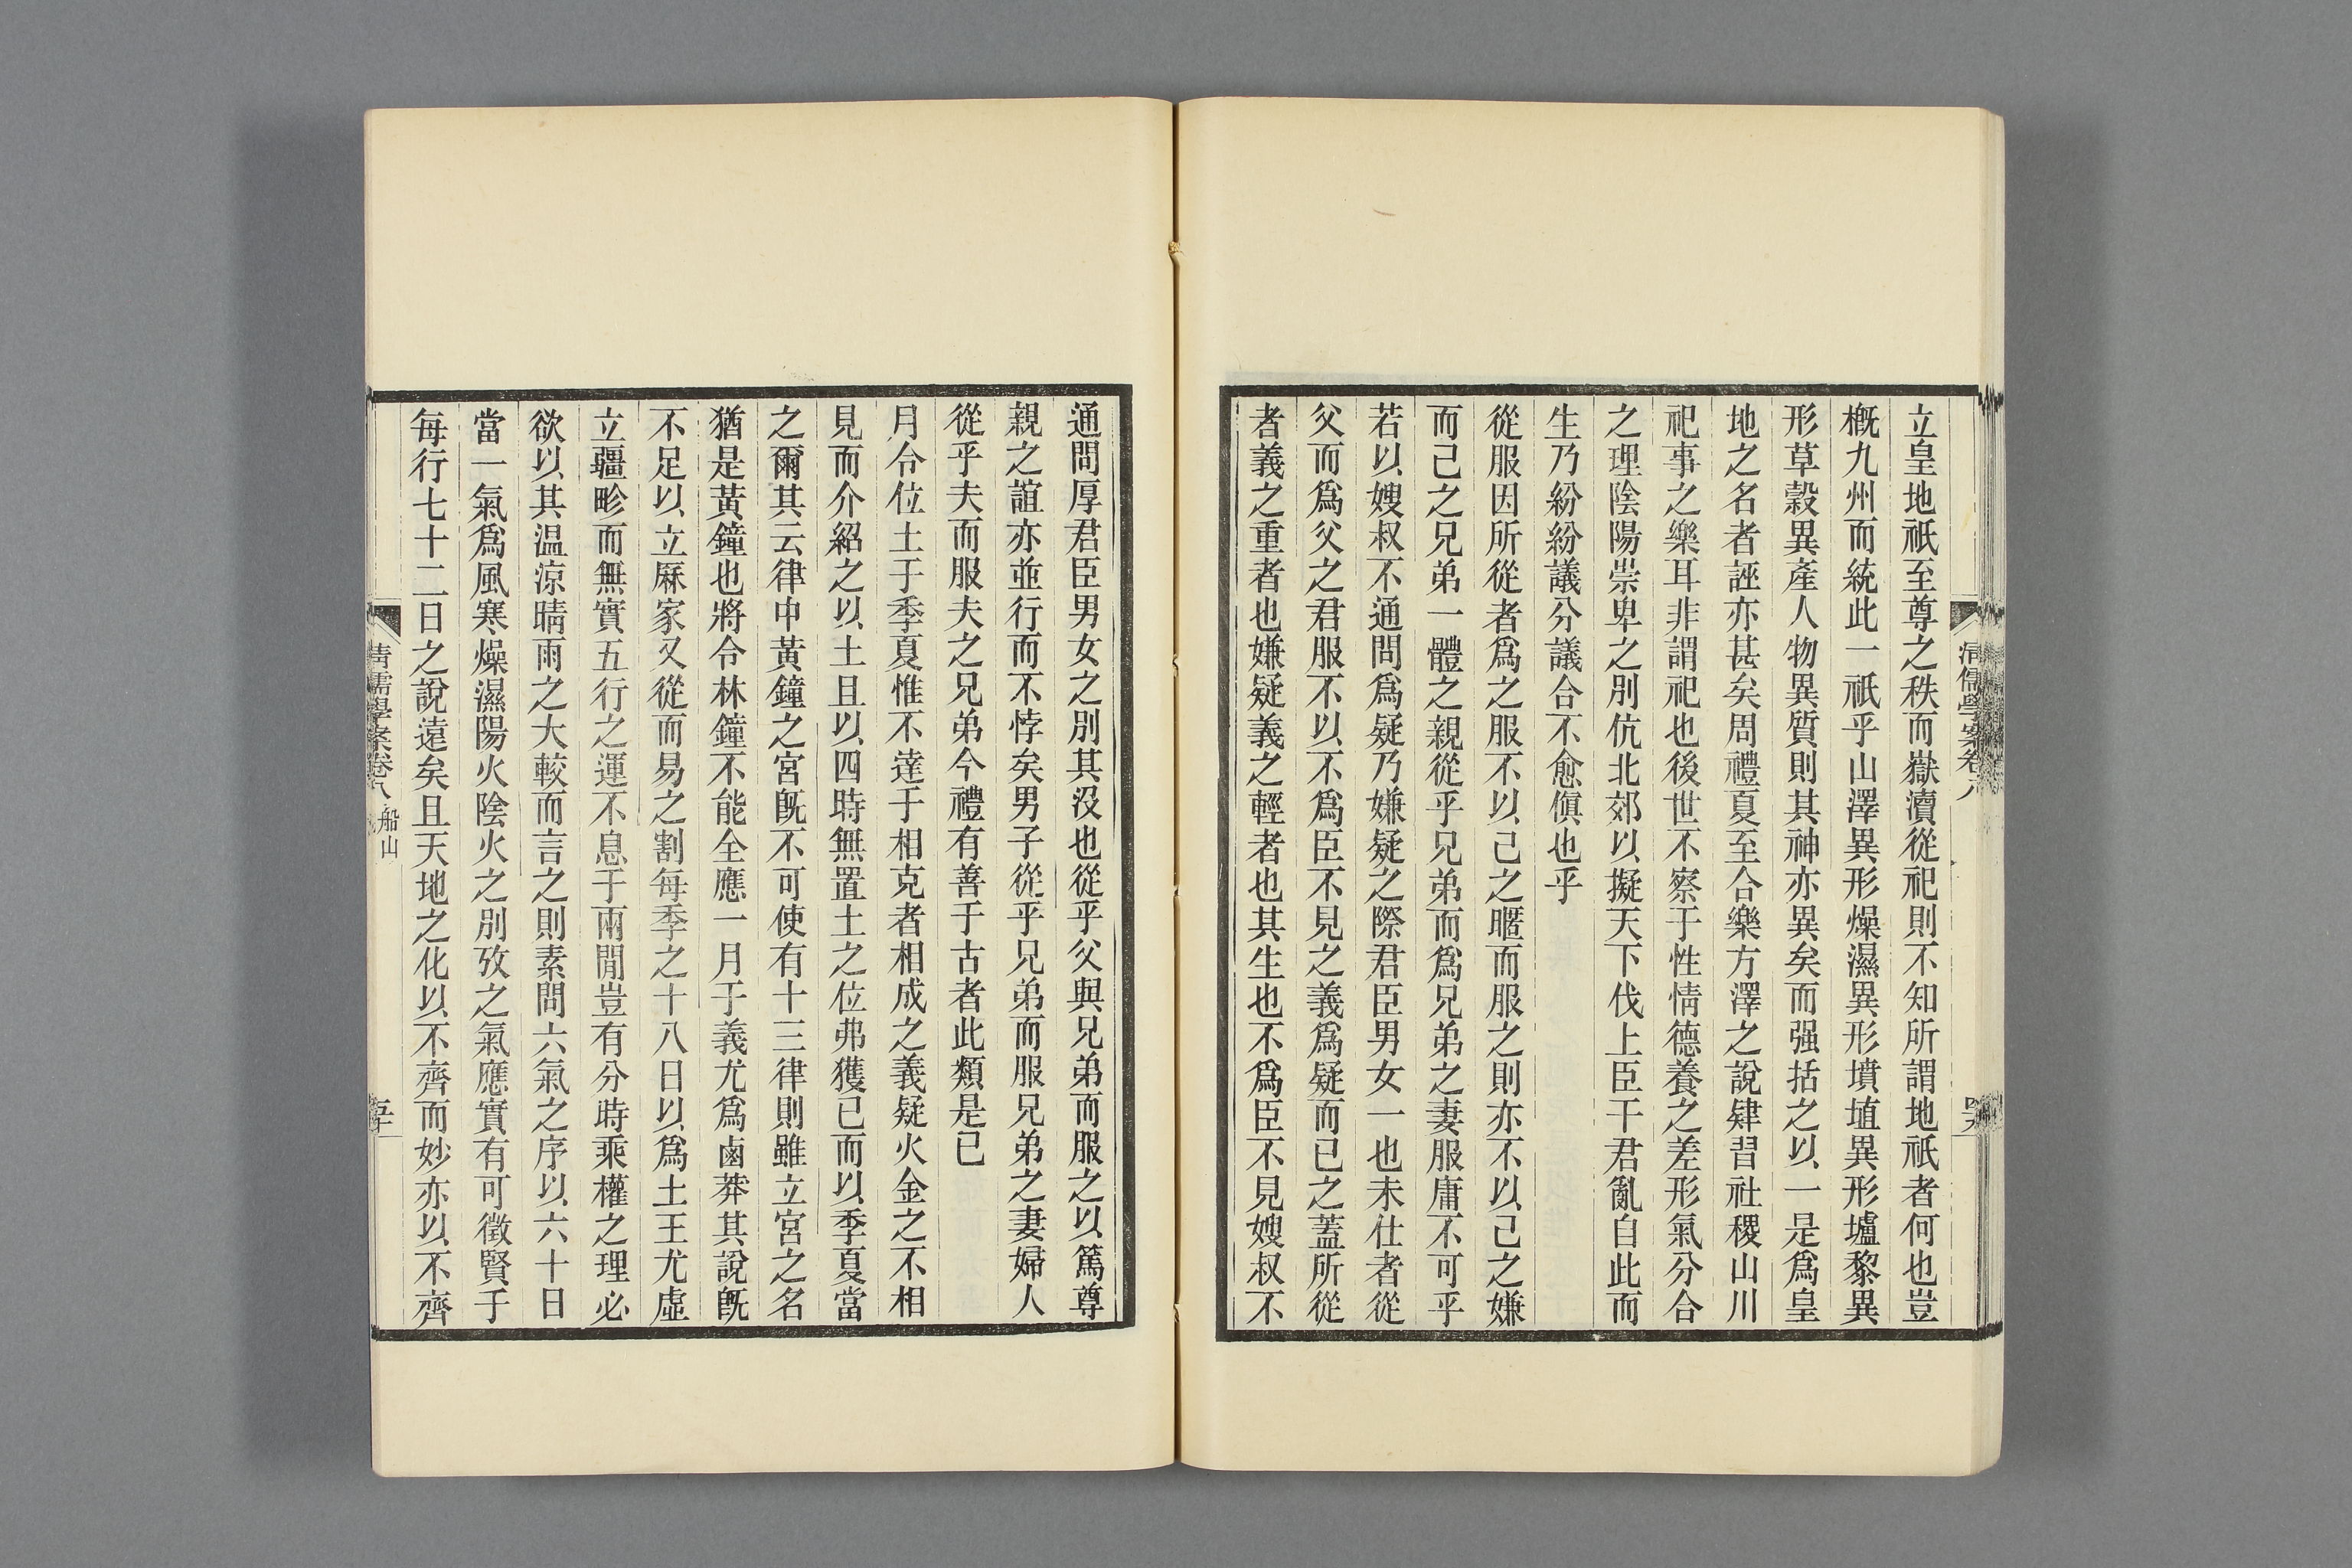 清儒學案卷八
立皇地祇至尊之秩而嶽瀆從祀則不知所謂地祇者何也豈
概九州而統此一祇乎山澤異形燥濕異形墳埴異形壚黎異
形草穀異產人物異質則其神亦異矣而强括之以一是爲皇
地之名者誣亦甚矣周禮夏至合樂方澤之說肄習社稷山川
祀事之樂耳非謂祀也後世不察于性情德養之差形氣分合
之理陰陽崇卑之別伉北郊以擬天下伐上臣干君亂自此而
生乃紛紛議分議合不愈傎也乎
從服因所從者爲之服不以己之暱而服之則亦不以己之嫌
而已之兄弟一體之親從乎兄弟而爲兄弟之妻服庸不可乎
若以嫂叔不通問爲疑乃嫌疑之際君臣男女一也未仕者從
父而爲父之君服不以不爲臣不見之義爲疑而已之蓋所從
者義之重者也嫌疑義之輕者也其生也不爲臣不見嫂叔不
通問厚君臣男女之別其沒也從乎父與兄弟而服之以篤尊
親之誼亦並行而不悖矣男子從乎兄弟而服兄弟之妻婦人
從乎夫而服夫之兄弟今禮有善于古者此類是已
月令位土于季夏惟不達于相克者相成之義疑火金之不相
見而介紹之以土且以四時無置土之位弗獲已而以季夏當
之爾其云律中黃鐘之宮旣不可使有十三律則雖立宮之名
猶是黃鐘也將令林鐘不能全應一月于義尤爲鹵莽其說旣
不足以立厤家又從而易之割每季之十八日以爲土王尤虛
立疆畛而無實五行之運不息于兩閒豈有分時乘權之理必
欲以其温涼晴雨之大較而言之則素問六氣之序以六十日
當一氣爲風寒燥濕陽火陰火之別攷之氣應實有可徵賢于
每行七十二日之說遠矣且天地之化以不齊而妙亦以不齊
清儒學案卷八 船山